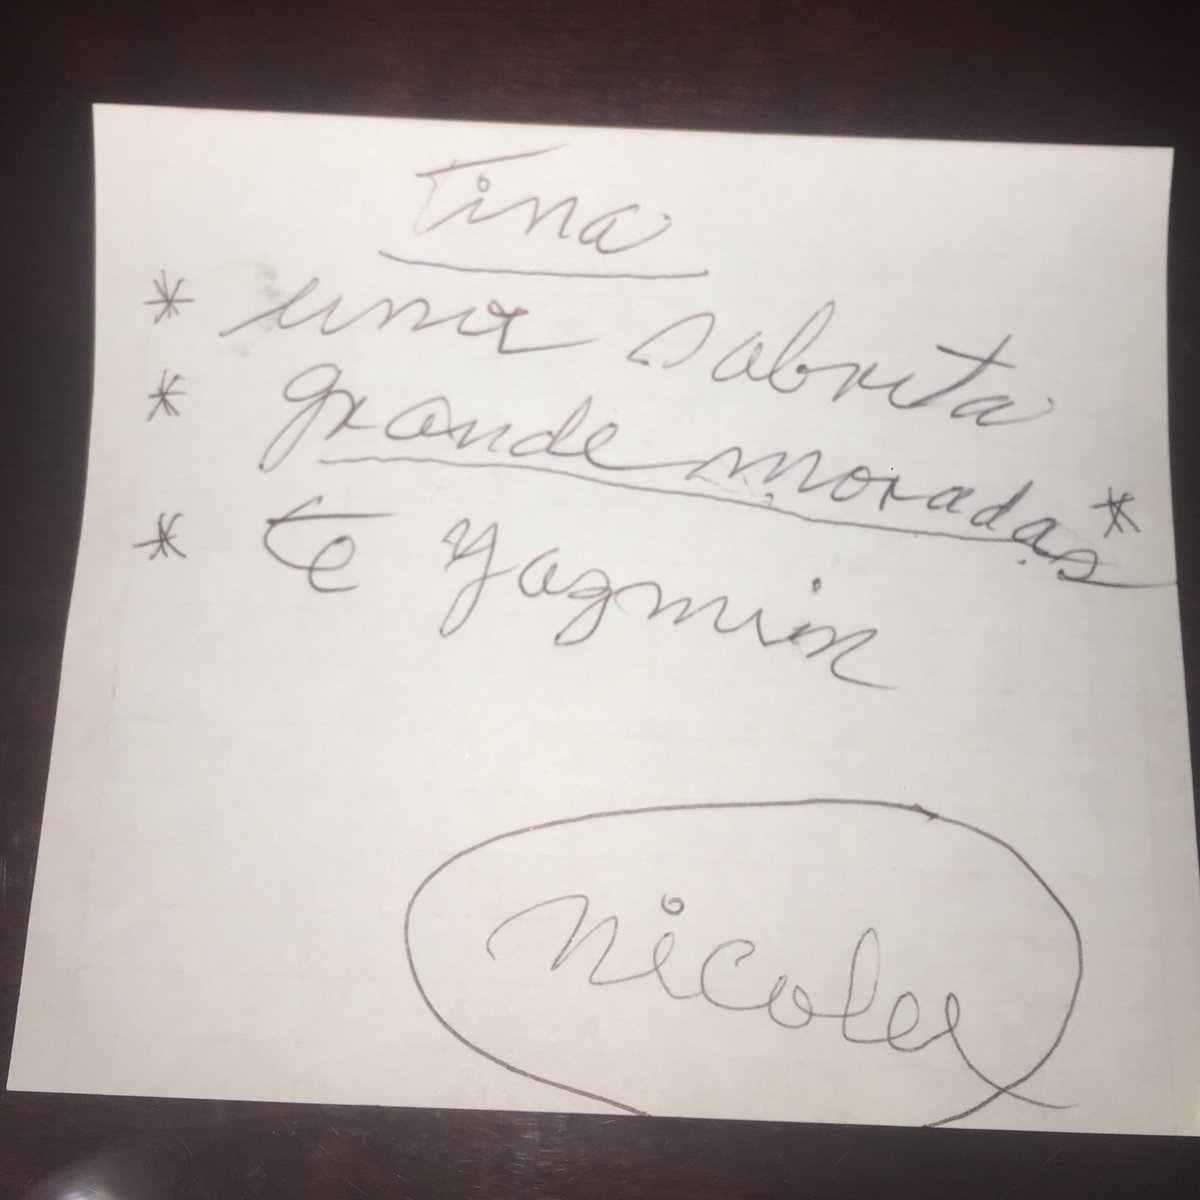 Tina
* una sabrita
* grande moradas *
* te yazmin
Nicole